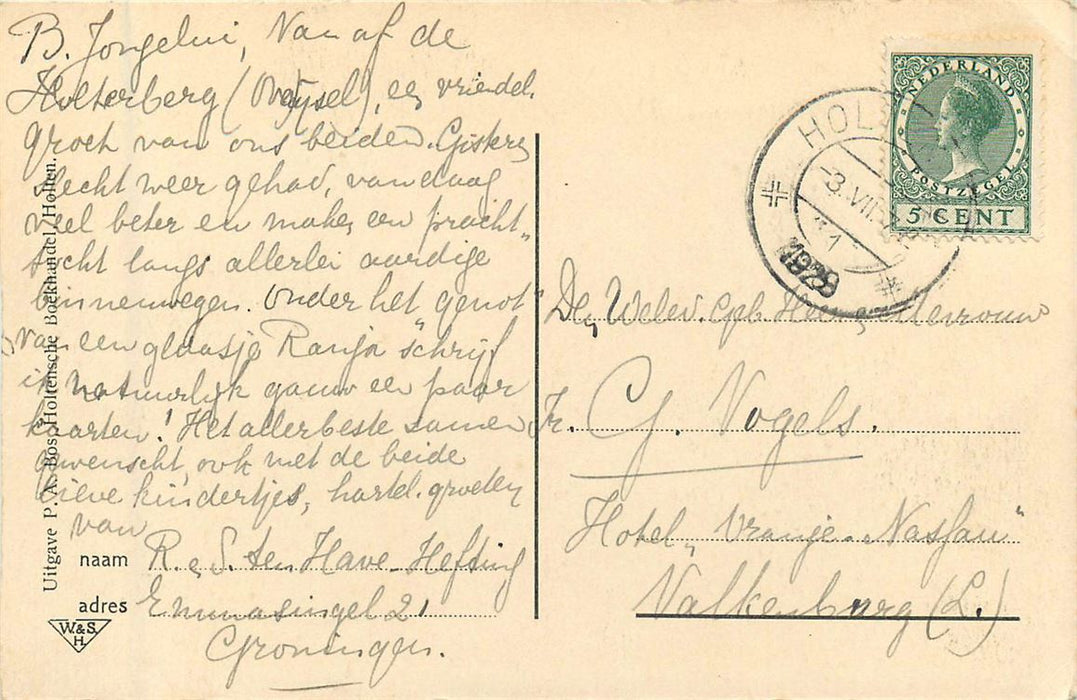 B. Jongelui, Vanaf de
Holterberg (Overijsel), een vriendel.
groet van ons beiden. Gisteren
slecht weer gehad, vandaag
veel beter en maken een pracht-
tocht langs allerlei aardige
binnenwegen. Onder het genot
van een glaasje "Ranja" schrijf
ik natuurlijk gauw een paar
kaarten! Het allerbeste samen
gewenscht, ook met de beide
lieve kindertjes, hartel. groeten
van
naam R. e. S. ten Have-Hefting
adres Emmasingel 21
Groningen.
Uitgave P. A. Bos, Holtensche Boekhandel, Holten.
W.&S.
H.
NEDERLAND
POSTZEGEL
5 CENT
HOL
-3.VII
1929
Den Weled. Geb. Heer Mevrouw
Fr. Cj. Vogels.
Hotel "Oranje-Nassau"
Valkenburg (L.)